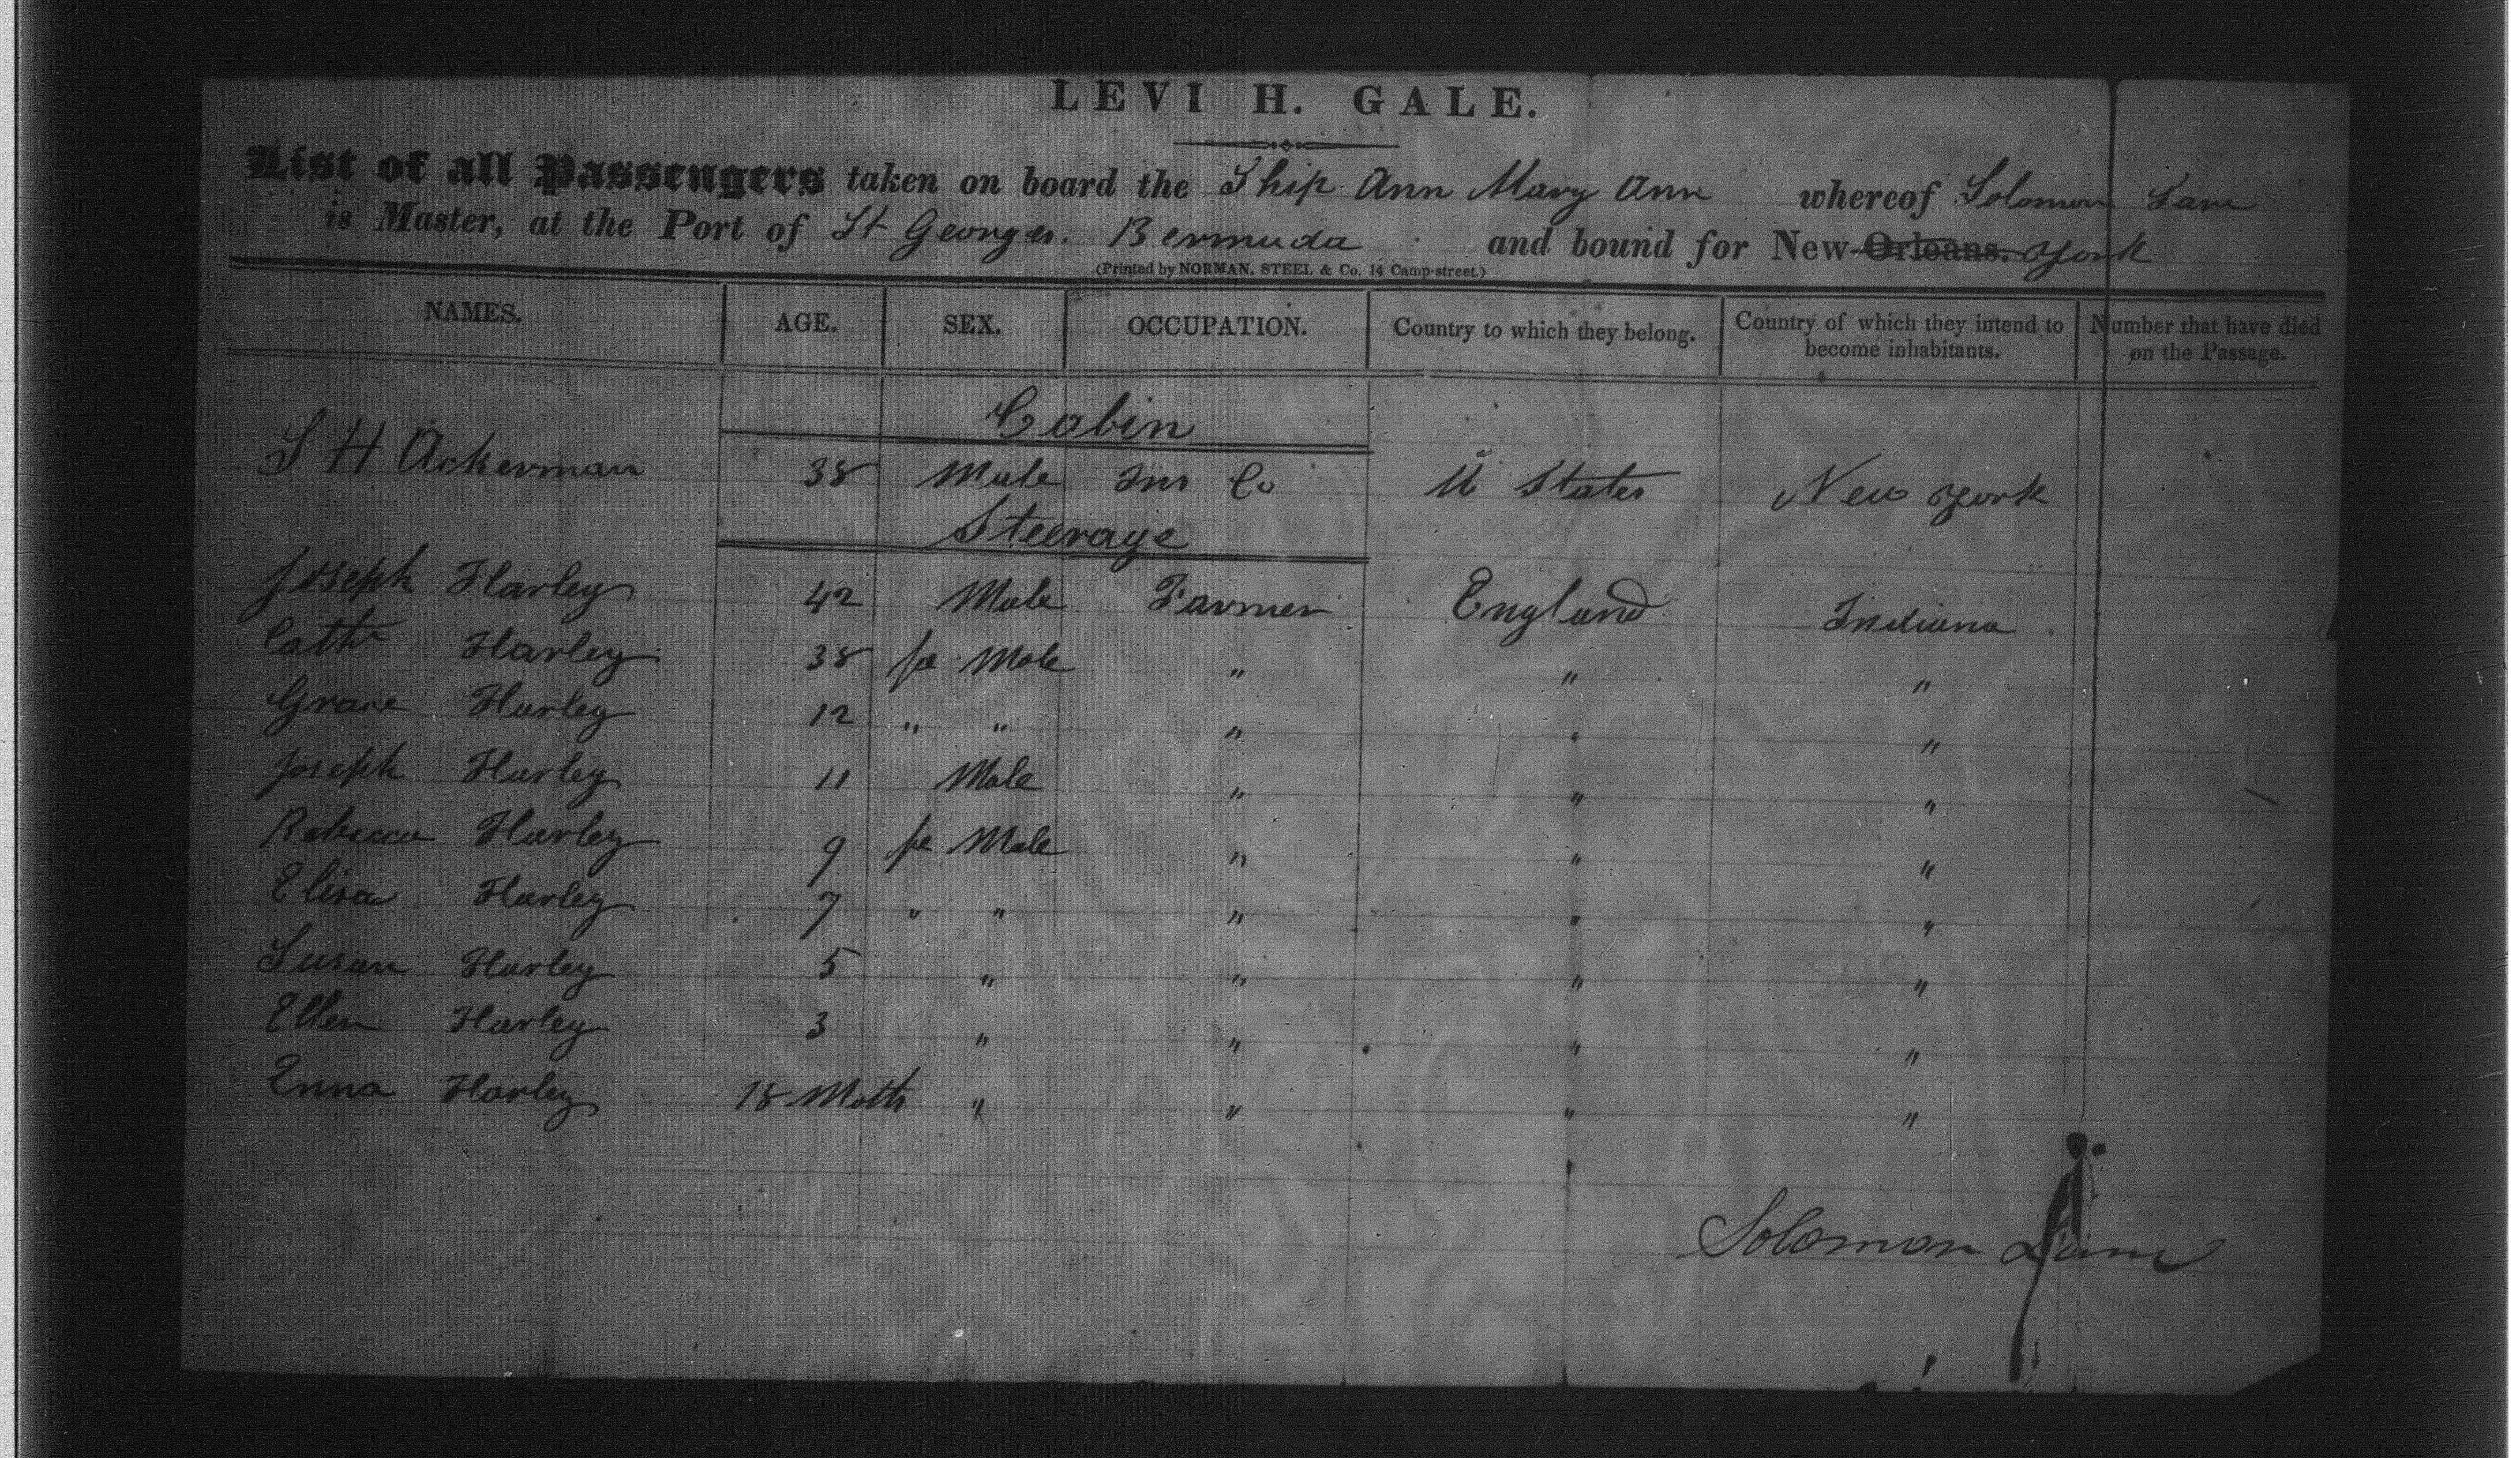 LEVI H. GALE.
List of all Passengers taken on board the Ship Ann Mary Ann whereof Solomon Lane
is Master, at the Port of St Georges. Bermuda and bound for New Orleans. York
(Printed by NORMAN, STEEL & Co. 14 Camp-street.)
NAMES. AGE. SEX. OCCUPATION. Country to which they belong. Country of which they intend to become inhabitants. Number that have died on the Passage.
Cabin
S H Ackerman 38 Male Ins Co U States New York
Steerage
Joseph Harley 42 Male Farmer England Indiana
Cathr Harley 38 fe Male " " "
Grace Harley 12 " " " " "
Joseph Harley 11 Male " " "
Rebecca Harley 9 fe Male " " "
Elisa Harley 7 " " " " "
Susan Harley 5 " " " "
Ellen Harley 3 " " " "
Enna Harley 18 Moths " " " "
Solomon Lane